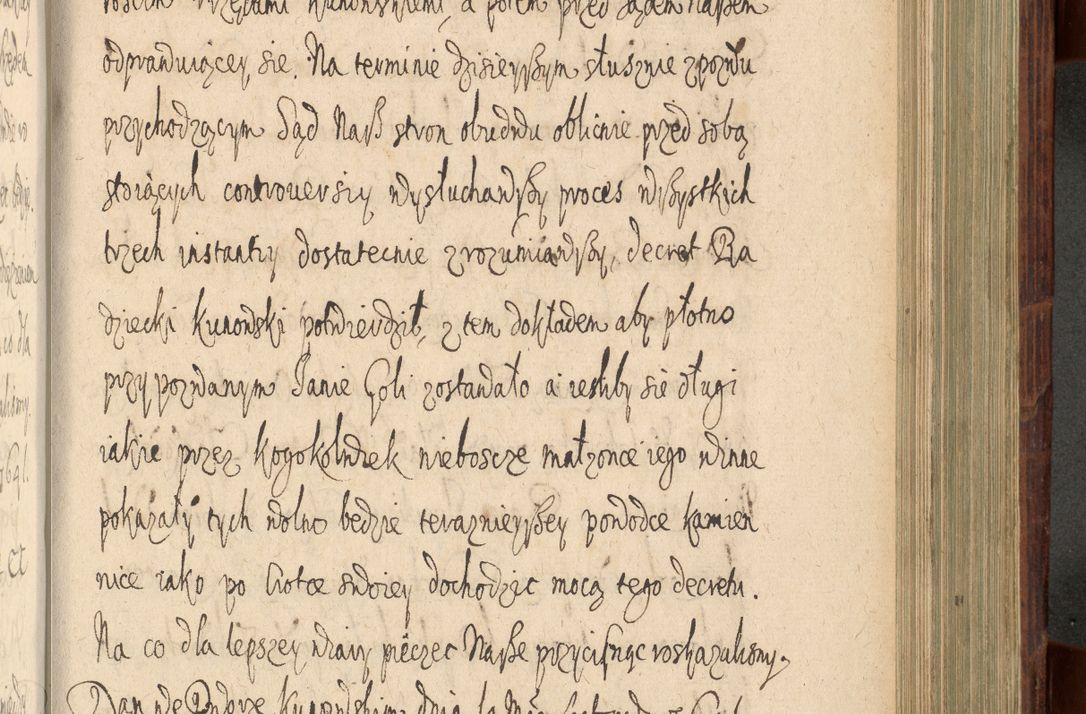 rościm Urzędami Kurowskiemi, a potem przed Sądem Naszem
odprawuiącey się. Na terminie dzisieyszym słusznie z pozwu
przychodzącym Sąd Nasz stron obudwu oblicnie przed sobą
stoiących controuersiy wysłuchawszy proces wszystkich
trzech instantiy dostatecnie zrozumiawszy, decret Ra
dziecki Kurowski potwierdził, z tem dokładem aby płotno
przy pozwanym Janie Goli zostawało a ieshby się długi
iakie przez kogokolwiek nieboscze małzonce iego winne
pokazały tych wolno bedzie teraznieyszey powodce kamien
nice iako po Ciotce swoiey dochodzic mocą tego decretu.
Na co dla lepszey wiary pieczęc Nasze przycisnąc roskazalismy.
Dan we Dworze Kurowskim dnia